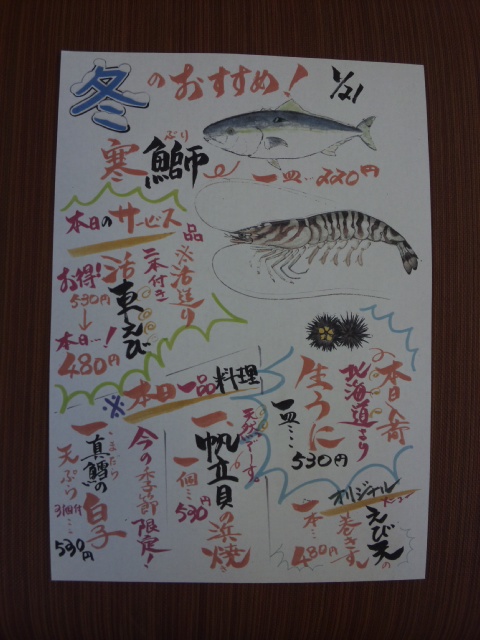 冬のおすすめ！
1/21
ぶり
寒鰤
一皿…220円
本日のサービス品
※活造り
二本付き
活車えび
お得！
530円
↓
本日…！
480円
本日入荷
北海道より
生うに
一皿…530円
※本日一品料理
天然です。
一、帆立貝の浜焼き
一個…530円
今の季節限定！
まだら
一、真鱈の白子
天ぷら
3個付…530円
オリジナルメニュー
えび天の
巻きす。
一本…480円